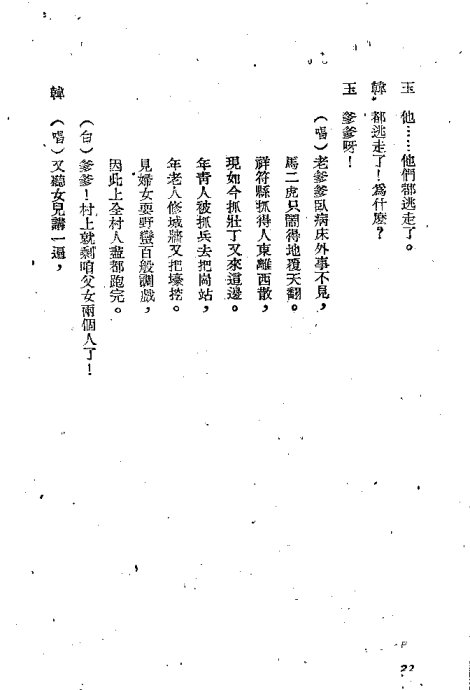 玉　他……他們都逃走了。
韓　都逃走了！爲什麽？
玉　爹爹呀！
（唱）老爹爹臥病床外事不見，
馬二虎只鬧得地覆天翻。
祥符縣抓得人東離西散，
現如今抓壯丁又來這邊。
年青人被抓兵去把崗站，
年老人修城牆又把壕挖。
見婦女耍野蠻百般調戲，
因此上全村人盡都跑完。
（白）爹爹！村上就剩咱父女兩個人了！
韓　（唱）又聽女兒講一遍，
22